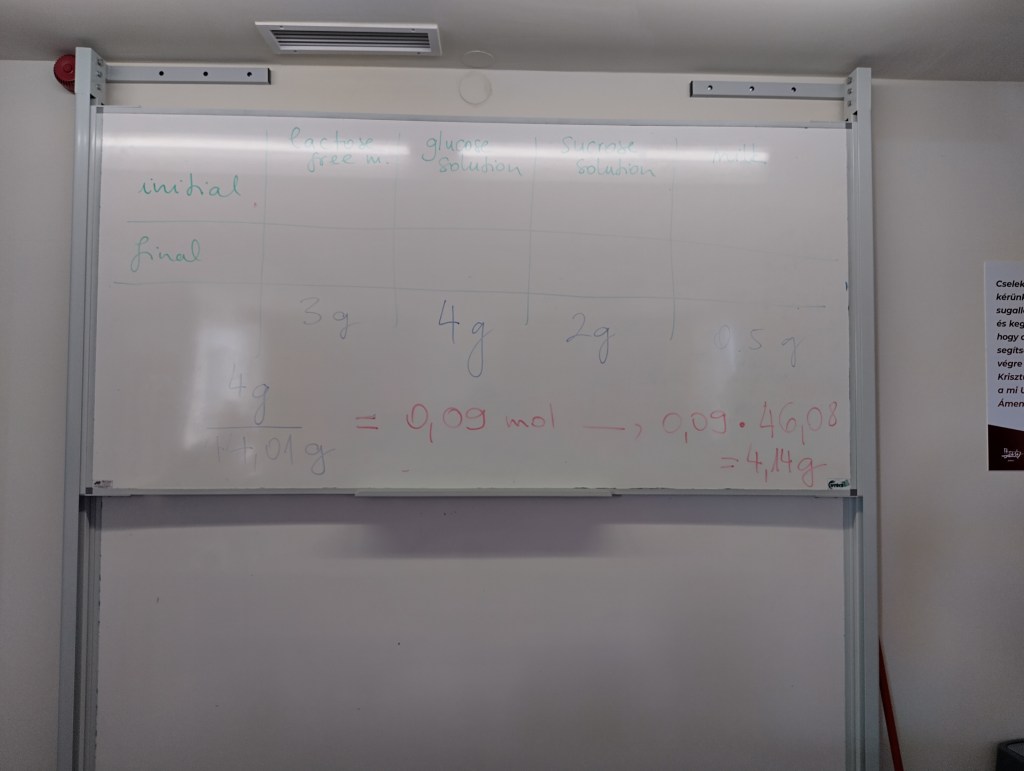 lactose free m.
glucose solution
sucrose solution
milk
initial
final
3 g
4g
2g
0,5 g
4g
= 0,09 mol → 0,09 · 46,08
44,01 g
= 4,14g
Cselek
kérünk
sugall
és keg
hogy
segíts
végre
Kriszt
a mi U
Ámen